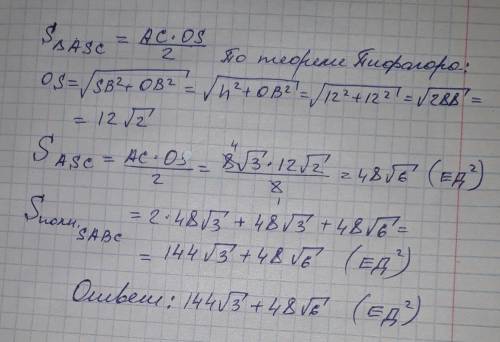 S_BASC = AC·OS/2 По теореме Пифагора:
OS = √(SB² + OB²) = √(h² + OB²) = √(12² + 12²) = √288 =
= 12√2
S_ASC = AC·OS/2 = 8√3·12√2/8 = 48√6 (ЕД²)
4 1
Sполн. SABC = 2·48√3 + 48√3 + 48√6 =
= 144√3 + 48√6 (ЕД²)
Ответ: 144√3 + 48√6 (ЕД²)